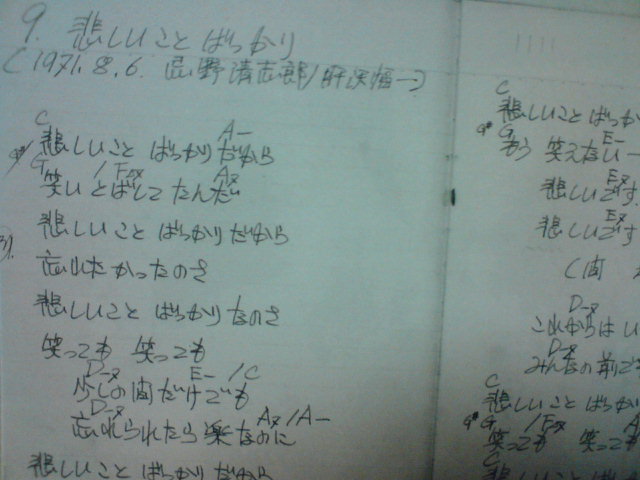 9. 悲しいことばっかり
(1971.8.6. 忌野清志郎/肝沢幅一)
C A-
悲しいこと ばっかりだから
G / F
笑いとばしてたんだ
悲しいこと ばっかりだから
忘れたかったのさ
悲しいこと ばっかりなのさ
笑っても 笑っても
D- E- / C
少しの間だけでも
D-
忘れられたら楽なのに
A / A-
悲しいこと ばっかりだから
C
悲しいこと ばっか
G E-
もう 笑えない
悲しいです
悲しいです
(間
D-
これからは
D-
みんなの前で
C
悲しいこと ばっか
G / F A
笑っても 笑っ
C
悲しいこと ばっか